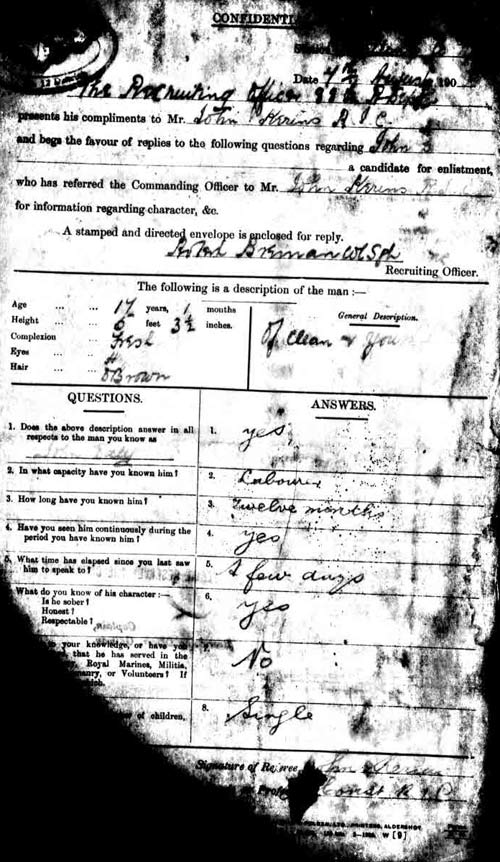 CONFIDENTI
Date 4th August 190
The Recruiting Officer 88th R. Dept
presents his compliments to Mr. John Kerins R I C
and begs the favour of replies to the following questions regarding John
a candidate for enlistment,
who has referred the Commanding Officer to Mr. John Kerins
for information regarding character, &c.
A stamped and directed envelope is enclosed for reply.
Brennan Col Sgt
Recruiting Officer.
The following is a description of the man :—
Age ... ... 17 years, 1 months
Height ... ... 5 feet 3½ inches.
General Description.
Complexion ... Fresh
Of Clean &
Eyes ... ...
Hair ... ... Brown
QUESTIONS.
ANSWERS.
1. Does the above description answer in all
respects to the man you know as
1. yes
2. In what capacity have you known him?
2. Labourer
3. How long have you known him?
3. Twelve months
4. Have you seen him continuously during the
period you have known him?
4. yes
5. What time has elapsed since you last saw
him to speak to?
5. A few days
What do you know of his character :—
Is he sober?
Honest?
Respectable?
6. yes
your knowledge, or have you
that he has served in the
Royal Marines, Militia,
or Volunteers? If
No
of children,
8. Single
Signature of Referee, John
Const R I C
ALDERSHOT
W [9]